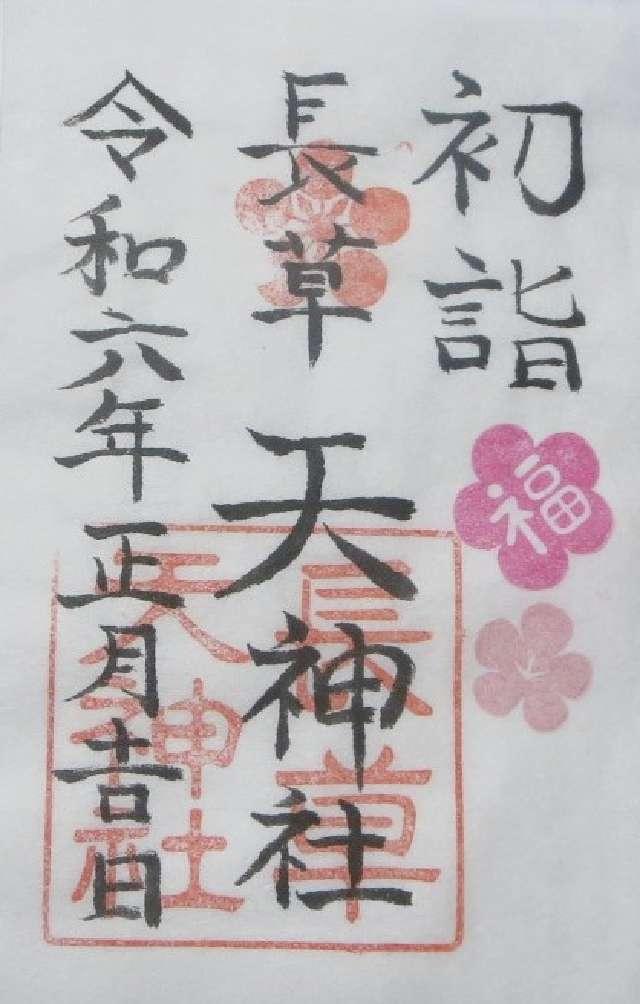 初詣
福
長草天神社
長草
天神社
令和六年正月吉日